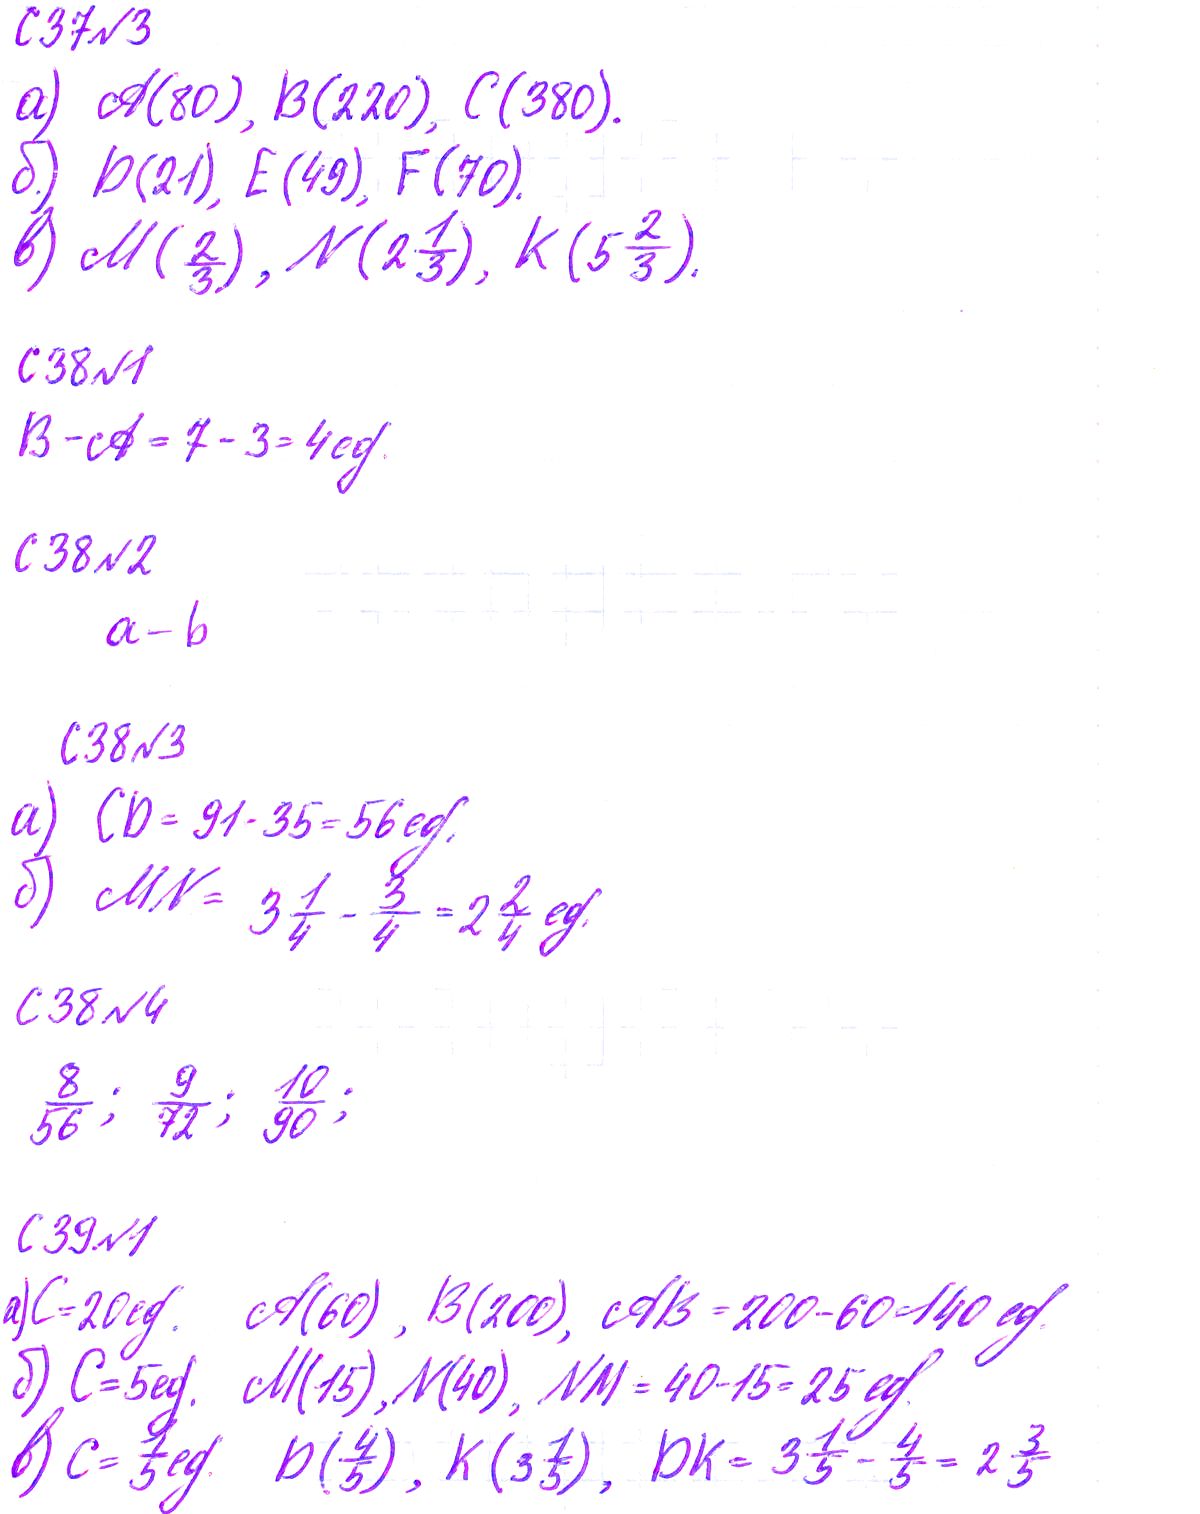 С37№3
а) А(80), В(220), С(380).
б) D(21), E(49), F(70).
в) М(2/3), N(2 1/3), К(5 2/3).
С38№1
В-А=7-3=4ед.
С38№2
a-b
С38№3
а) CD=91-35=56ед.
б) MN= 3 1/4 - 3/4 = 2 2/4 ед.
С38№4
8/56; 9/72; 10/90;
С39№1
а) С=20ед. А(60), В(200), АВ=200-60=140 ед.
б) С=5ед. М(15), N(40), NM=40-15=25 ед
в) С=1/5ед. D(4/5), К(3 1/5), DK= 3 1/5 - 4/5 = 2 3/5